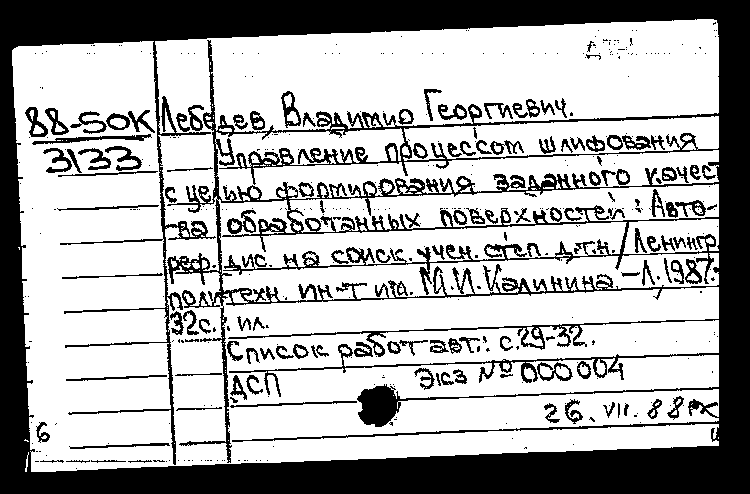 88-50K Лебедев, Владимир Георгиевич.
3133 Управление процессом шлифования
с целью формирования заданного качест-
ва обработанных поверхностей: Авто-
реф. дис. на соиск. учен. степ. д.т.н. / Ленингр.
политехн. ин-т им. М.И. Калинина. -Л., 1987.-
32с.: ил.
Список работ авт.: с.29-32.
ДСП Экз № 000004
26.VII.88
6